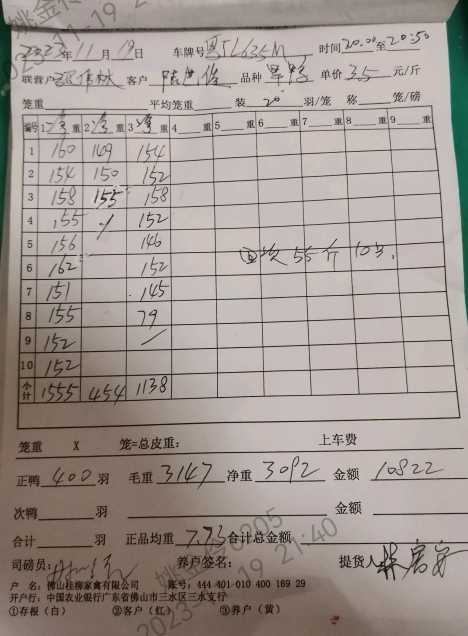 2023年11月19日 车牌号 粤TL635M 时间20:00至20:50
联营户 客户 品种 单价 3.5 元/斤
笼重 平均笼重 装 20 羽/笼 称 笼/磅
编号 1 净 重 2 净 重 3 净 重 4 重 5 重 6 重 7 重 8 重 9 重
1 160 149 154
2 154 150 152
3 158 155 158
4 155 152
5 156 146
6 162 152
7 151 145
8 155 79
9 152
10 152
小计 1555 454 1138
次 55斤 10只
笼重 X 笼=总皮重: 上车费
正鸭 400 羽 毛重 3147 净重 3092 金额 10822
次鸭 羽 金额
合计 羽 正品均重 7.73 合计总金额
司磅员: 养户签名: 提货人
户 名:佛山桂柳家禽有限公司 账号:444 401 010 400 169 29
开户行:中国农业银行广东省佛山市三水区三水支行
①存根(白) ②客户(红) ③养户(黄)
2023-11-19 21:40